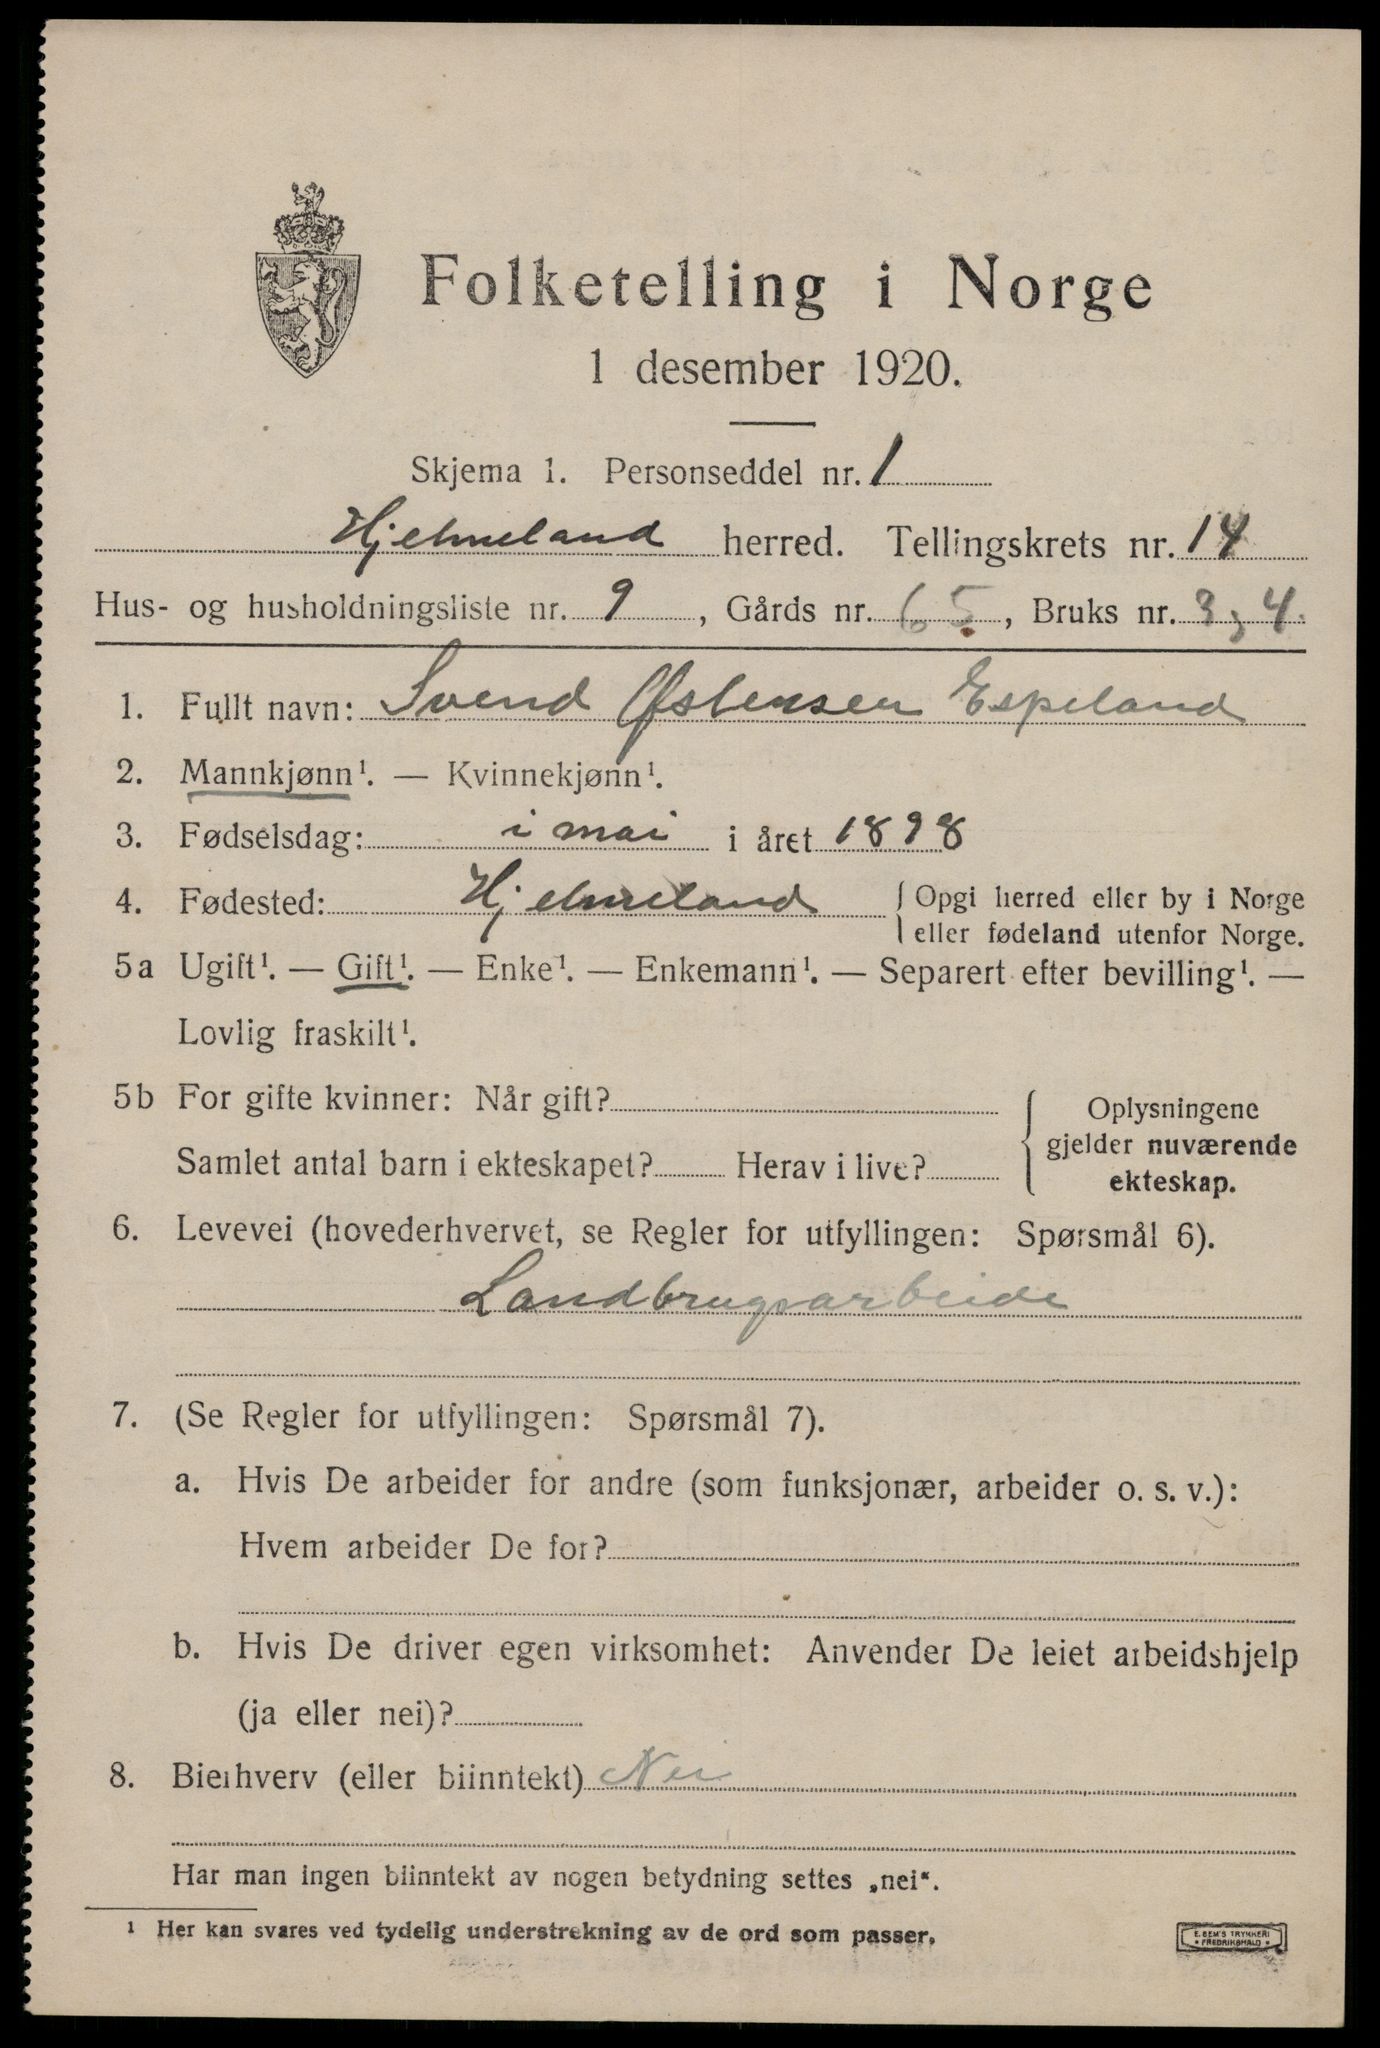 Folketelling i Norge
1 desember 1920.
Skjema 1. Personseddel nr. 1
Hjelmeland herred. Tellingskrets nr. 14
Hus- og husholdningsliste nr. 9, Gårds nr. 65, Bruks nr. 3, 4.
1. Fullt navn: Svend Østensen Espeland
2. Mannkjønn¹. — Kvinnekjønn¹.
3. Fødselsdag: i mai i året 1898
4. Fødested: Hjelmeland { Opgi herred eller by i Norge
eller fødeland utenfor Norge.
5a Ugift¹. — Gift¹. — Enke¹. — Enkemann¹. — Separert efter bevilling¹. —
Lovlig fraskilt¹.
5b For gifte kvinner: Når gift?
Samlet antal barn i ekteskapet? Herav i live?
{ Oplysningene
gjelder nuværende
ekteskap.
6. Levevei (hovederhvervet, se Regler for utfyllingen: Spørsmål 6).
Landbrugsarbeide
7. (Se Regler for utfyllingen: Spørsmål 7).
a. Hvis De arbeider for andre (som funksjonær, arbeider o. s. v.):
Hvem arbeider De for?
b. Hvis De driver egen virksomhet: Anvender De leiet arbeidshjelp
(ja eller nei)?
8. Bierhverv (eller biinntekt) Nei
Har man ingen biinntekt av nogen betydning settes „nei“.
¹ Her kan svares ved tydelig understrekning av de ord som passer.
E. SEM'S TRYKKERI
* FREDRIKSHALD *